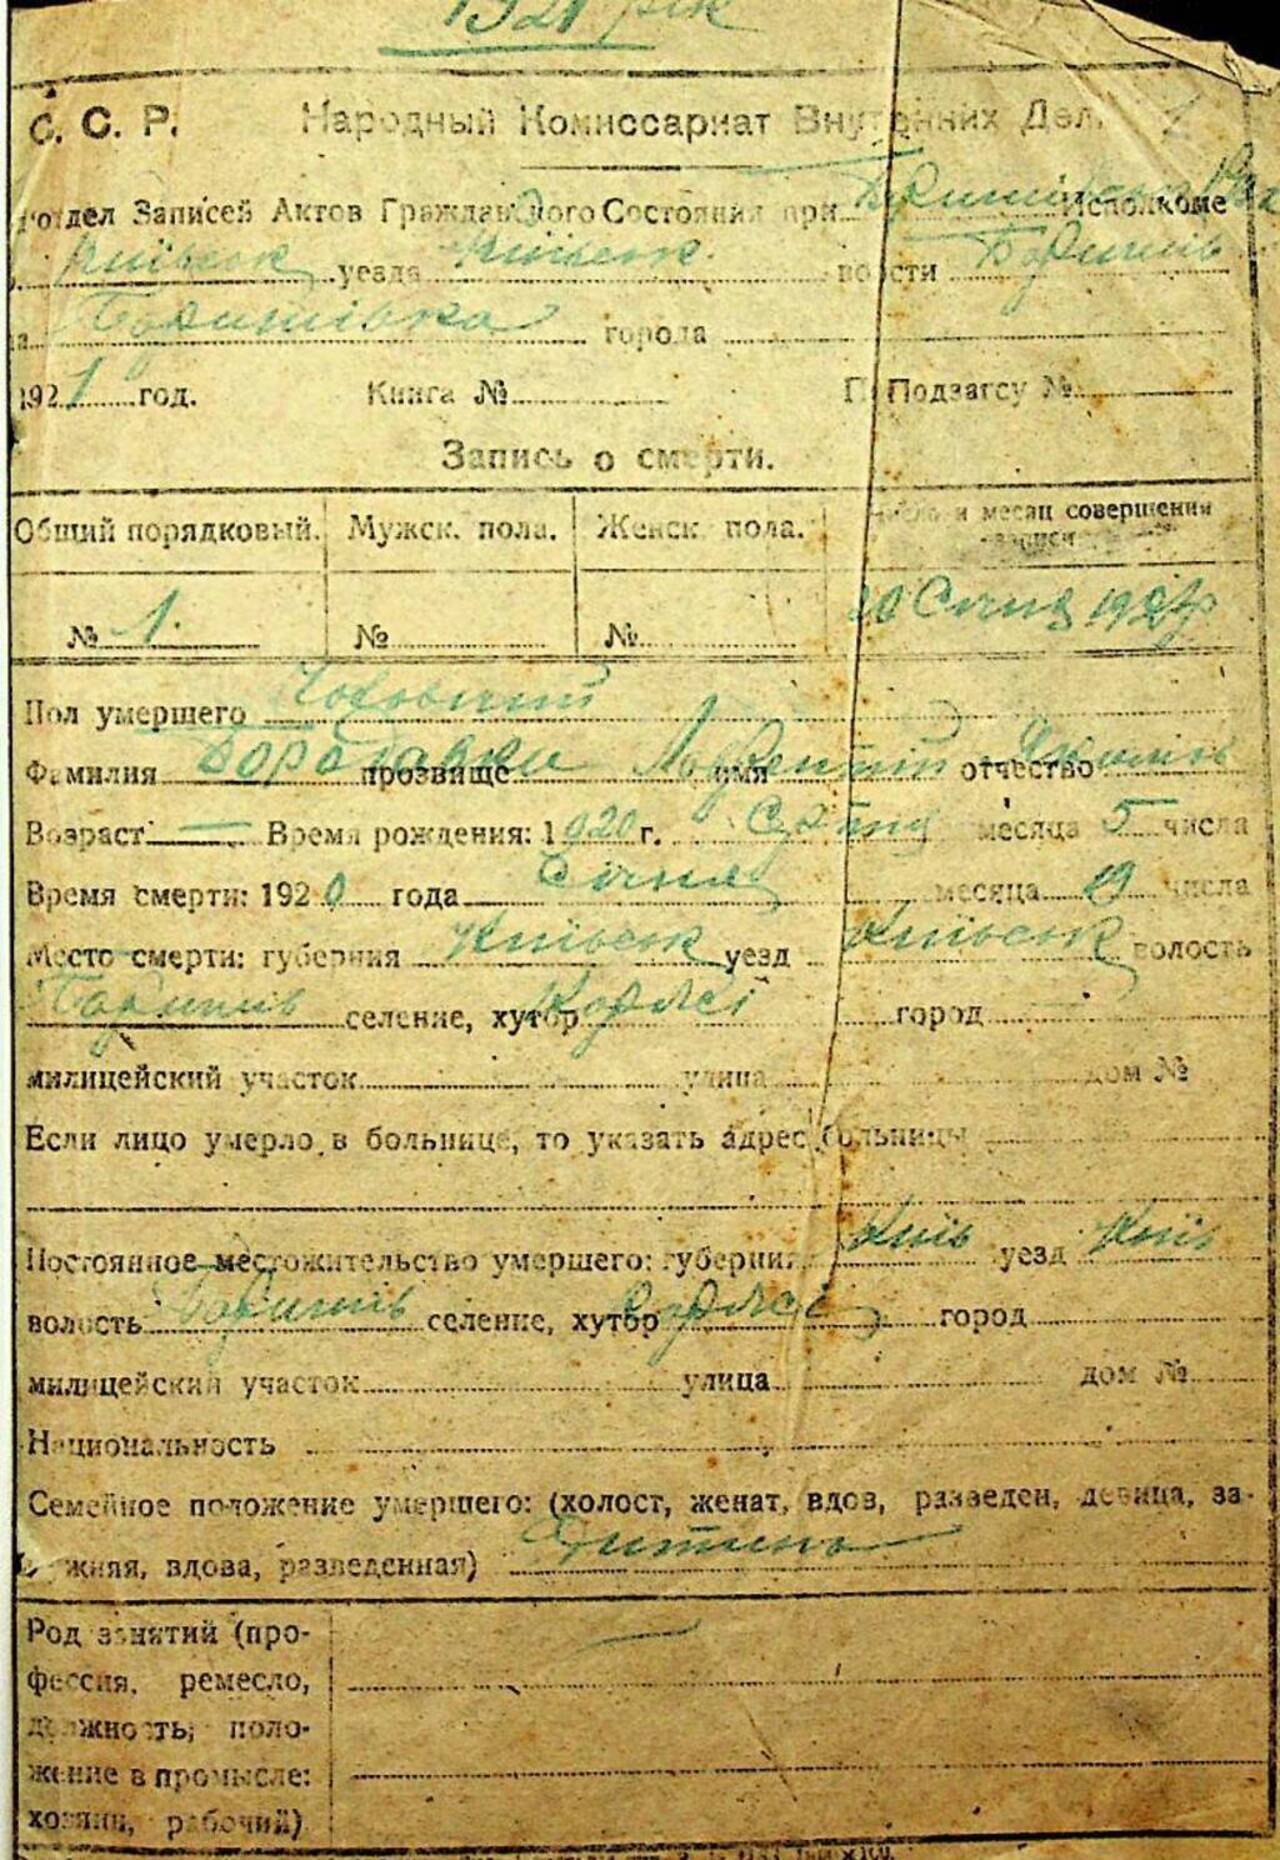 1921 рік
С. С. Р. Народный Комиссариат Внутренних Дел.
отдел Записей Актов Гражданского Состояния при Исполкоме
Київськ уезда Київськ волости Баришів
Баришівка города
1921 год. Книга № П. Подзагсу №
Запись о смерти.
Общий порядковый. Мужск. пола. Женск. пола. Число и месяц совершения записи
№ 1. № № 20 Січня 1921 р
Пол умершего Чоловічий
Фамилия прозвище Бородавки имя Лаврентий отчество
Возраст — Время рождения: 1920 г. Серпня месяца 5 числа
Время смерти: 1920 года Січня месяца 19 числа
Место смерти: губерния Київськ уезд Київськ волость
Баришів селение, хутор Коржі город
милицейский участок улица дом №
Если лицо умерло в больнице, то указать адрес больницы
Постоянное местожительство умершего: губерния Київ уезд Київ
волость Баришів селение, хутор Коржі город
милицейский участок улица дом №
Национальность
Семейное положение умершего: (холост, женат, вдов, разведен, девица, за-
мужняя, вдова, разведенная) Дитина
Род занятий (про- —
фессия, ремесло,
должность, поло-
жение в промысле:
хозяин, рабочий)